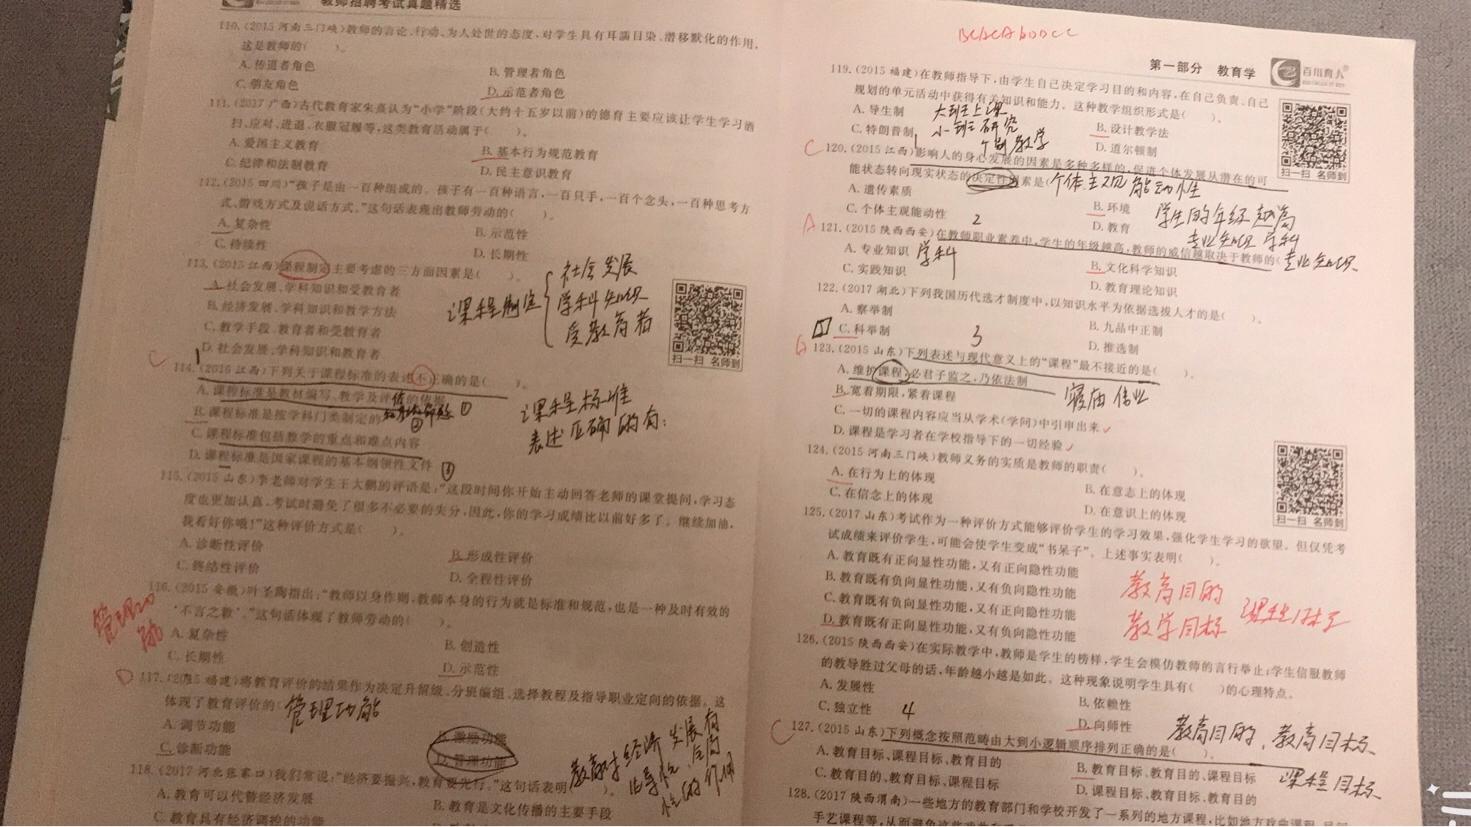 教师招聘考试真题精选
110.(2015 河南三门峡)教师的言论、行动、为人处世的态度,对学生具有耳濡目染、潜移默化的作用,
这是教师的( )。
A.传道者角色
B.管理者角色
C.朋友角色
D.示范者角色
111.(2017 广西)古代教育家朱熹认为“小学”阶段(大约十五岁以前)的德育主要应该让学生学习洒
扫、应对、进退、衣服冠履等,这类教育活动属于( )。
A.爱国主义教育
B.基本行为规范教育
C.纪律和法制教育
D.民主意识教育
112.(2015 四川)“孩子是由一百种组成的。孩子有一百种语言,一百只手,一百个念头,一百种思考方
式、游戏方式及说话方式。”这句话表现出教师劳动的( )。
A.复杂性
B.示范性
C.持续性
D.长期性
113.(2015 江西)课程制定主要考虑的三方面因素是( )。
A.社会发展、学科知识和受教育者
B.经济发展、学科知识和教学方法
C.教学手段、教育者和受教育者
D.社会发展、学科知识和教育者
课程制定
社会发展
学科知识
受教育者
扫一扫 名师到
C
114.(2016 江西)下列关于课程标准的表述不正确的是( )。
A.课程标准是教材编写、教学及评估的依据
B.课程标准是按学科门类制定的
C.课程标准包括教学的重点和难点内容
D.课程标准是国家课程的基本纲领性文件
课程标准
表述正确的有:
115.(2015 山东)李老师对学生王大鹏的评语是:“这段时间你开始主动回答老师的课堂提问,学习态
度也更加认真,考试时避免了很多不必要的失分,因此,你的学习成绩比以前好多了。继续加油,
我看好你哦!”这种评价方式是( )。
A.诊断性评价
B.形成性评价
C.终结性评价
D.全程性评价
116.(2015 安徽)叶圣陶指出:“教师以身作则,教师本身的行为就是标准和规范,也是一种及时有效的
‘不言之教’。”这句话体现了教师劳动的( )。
A.复杂性
B.创造性
C.长期性
D.示范性
管理功能
D
117.(2015 福建)将教育评价的结果作为决定升留级、分班编组、选择教程及指导职业定向的依据。这
体现了教育评价的(
管理功能
A.调节功能
B.激励功能
C.诊断功能
D.管理功能
118.(2017 河北张家口)我们常说:“经济要振兴,教育要先行。”这句话表明( )。
A.教育可以代替经济发展
B.教育是文化传播的主要手段
C.教育具有经济调控的功能
教育对经济发展有
第一部分 教育学
百川育人
119.(2015 福建)在教师指导下,由学生自己决定学习目的和内容,在自己负责、自己
规划的单元活动中获得有关知识和能力。这种教学组织形式是( )。
A.导生制
B.设计教学法
C.特朗普制
D.道尔顿制
大班上课
小班研究
个别教学
扫一扫 名师到
C
120.(2015 江西)影响人的身心发展的因素是多种多样的,促进个体发展从潜在的可
能状态转向现实状态的决定性因素是(
个体主观能动性
A.遗传素质
B.环境
C.个体主观能动性
D.教育
2
学生的年级越高
专业知识 学科
A
121.(2015 陕西西安)在教师职业素养中,学生的年级越高,教师的威信越取决于教师的(
专业知识
A.专业知识
学科
B.文化科学知识
C.实践知识
D.教育理论知识
122.(2017 湖北)下列我国历代选才制度中,以知识水平为依据选拔人才的是( )。
A.察举制
B.九品中正制
C.科举制
D.推选制
3
123.(2015 山东)下列表述与现代意义上的“课程”最不接近的是( )。
A.维护课程,必君子监之,乃依法制
B.宽着期限,紧着课程
寝庙伟业
C.一切的课程内容应当从学术(学问)中引申出来
D.课程是学习者在学校指导下的一切经验
124.(2015 河南三门峡)教师义务的实质是教师的职责( )。
A.在行为上的体现
B.在意志上的体现
C.在信念上的体现
D.在意识上的体现
扫一扫 名师到
125.(2017 山东)考试作为一种评价方式能够评价学生的学习效果,强化学生学习的欲望。但仅凭考
试成绩来评价学生,可能会使学生变成“书呆子”。上述事实表明( )。
A.教育既有正向显性功能,又有正向隐性功能
B.教育既有负向显性功能,又有负向隐性功能
C.教育既有负向显性功能,又有正向隐性功能
D.教育既有正向显性功能,又有负向隐性功能
教育目的
教学目标
课程目标
126.(2015 陕西西安)在实际教学中,教师是学生的榜样,学生会模仿教师的言行举止;学生信服教师
的教导胜过父母的话,年龄越小越是如此。这种现象说明学生具有( )的心理特点。
A.发展性
B.依赖性
C.独立性
D.向师性
4
C
127.(2015 山东)下列概念按照范畴由大到小逻辑顺序排列正确的是( )。
教育目的、教育目标、
课程目标
A.教育目标、课程目标、教育目的
B.教育目标、教育目的、课程目标
C.教育目的、教育目标、课程目标
D.课程目标、教育目标、教育目的
128.(2017 陕西渭南)一些地方的教育部门和学校开发了一系列的地方课程,比如地方戏曲课程、民间
手艺课程等,从而避免